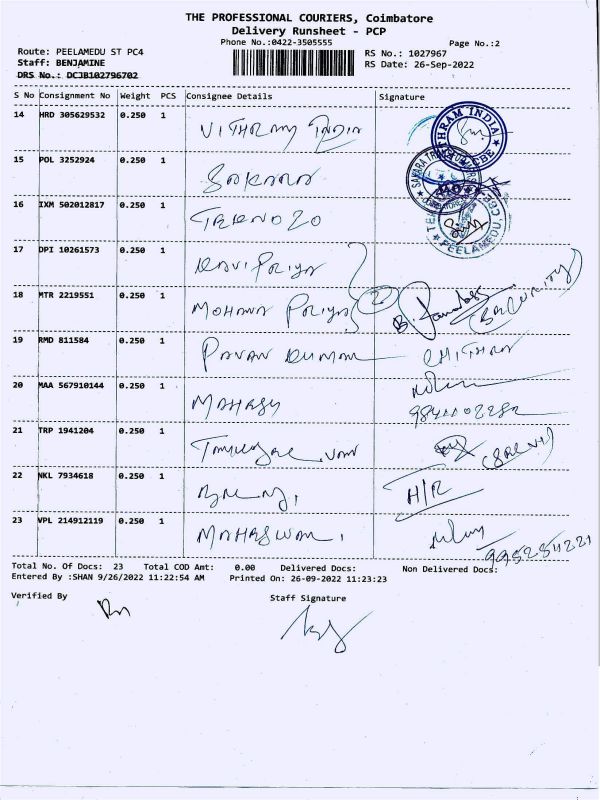 THE PROFESSIONAL COURIERS, Coimbatore
Delivery Runsheet - PCP
Phone No.:0422-3505555
Page No.:2
Route: PEELAMEDU ST PC4
RS No.: 1027967
Staff: BENJAMINE
RS Date: 26-Sep-2022
DRS No.: DCJB102796702
S No Consignment No Weight PCS Consignee Details Signature
14 HRD 305629532 0.250 1 VITHRAM INDIA
15 POL 3252924 0.250 1 SAKARA
16 IXM 502012817 0.250 1 TEKNOZO
17 DPI 10261573 0.250 1 RAVIPRIYA
18 MTR 2219551 0.250 1 MOHANA PRIYA 2 SECURITY
19 RMD 811584 0.250 1 PAVAN KUMAR CHITHRA
20 MAA 567910144 0.250 1 MAHASU
21 TRP 1941204 0.250 1
22 NKL 7934618 0.250 1 H/R
23 VPL 214912119 0.250 1 MAHASWARI
9952541221
Total No. Of Docs: 23 Total COD Amt: 0.00 Delivered Docs: Non Delivered Docs:
Entered By :SHAN 9/26/2022 11:22:54 AM Printed On: 26-09-2022 11:23:23
Verified By Staff Signature